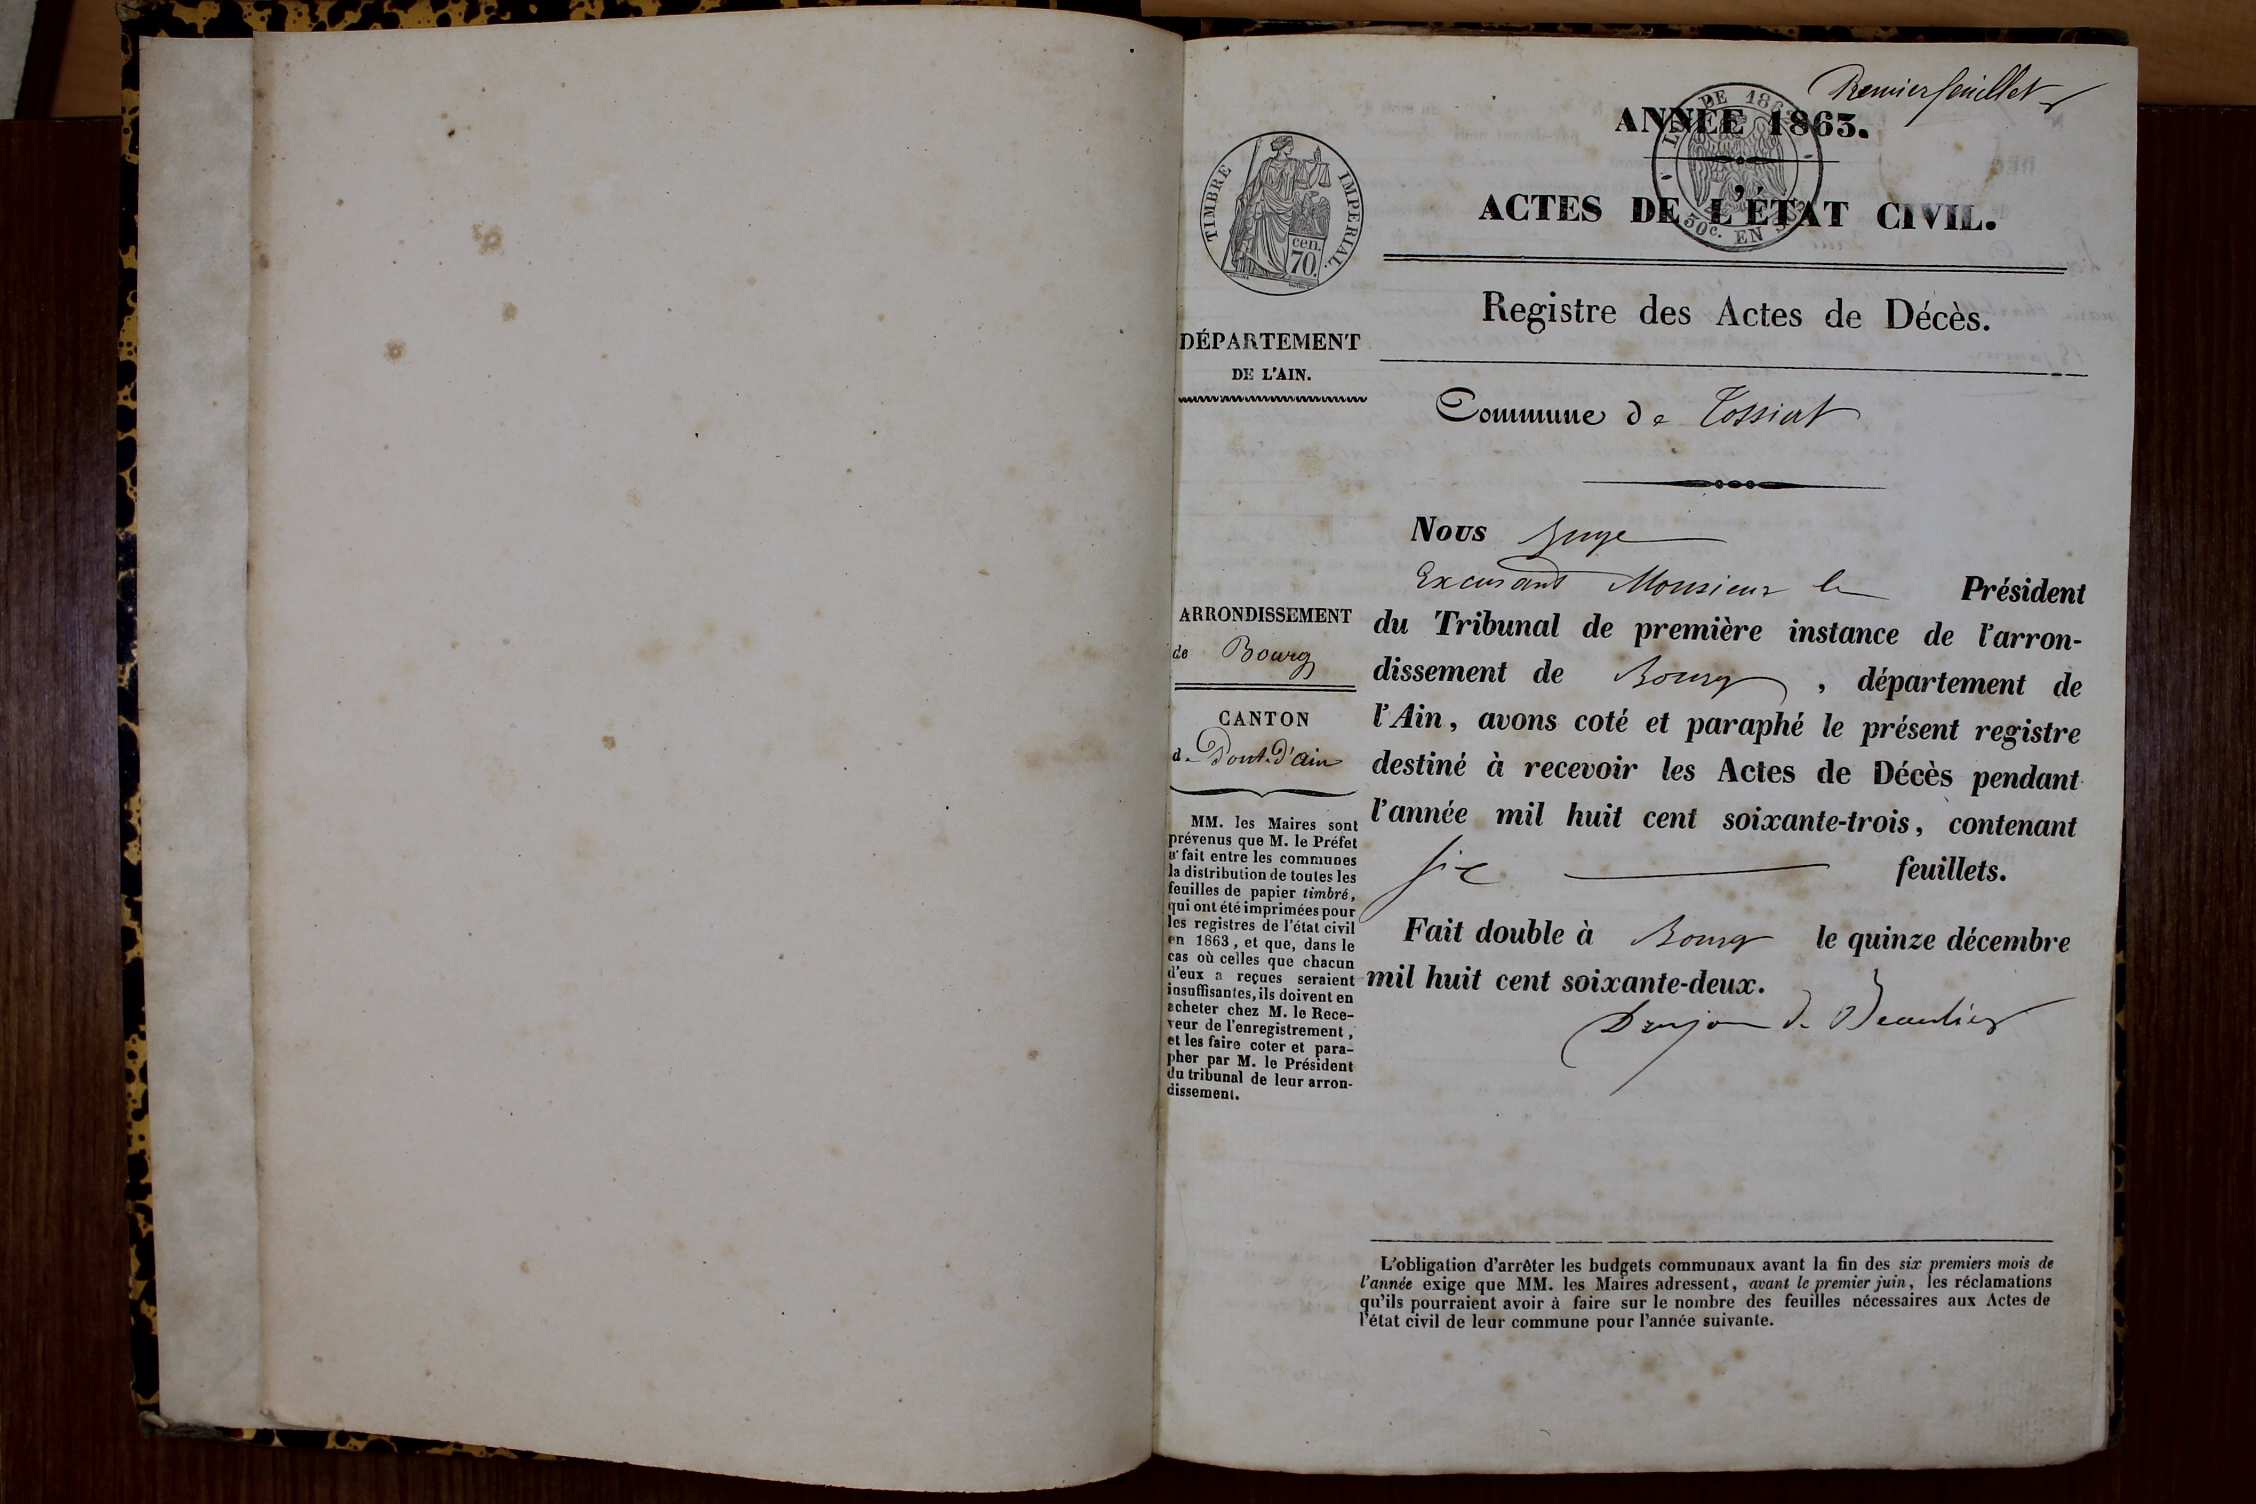 Premier feuillet
ANNÉE 1863.
TIMBRE IMPERIAL.
cen.
70.
ACTES DE L'ÉTAT CIVIL.
50c. EN
Registre des Actes de Décès.
DÉPARTEMENT
DE L'AIN.
Commune de Tossiat
Nous Juge
Excusant Monsieur le Président
du Tribunal de première instance de l'arron-
dissement de Bourg, département de
l'Ain, avons coté et paraphé le présent registre
destiné à recevoir les Actes de Décès pendant
l'année mil huit cent soixante-trois, contenant
six feuillets.
Fait double à Bourg le quinze décembre
mil huit cent soixante-deux.
ARRONDISSEMENT
de Bourg
CANTON
de Pont-d'ain
MM. les Maires sont
prévenus que M. le Préfet
a fait entre les communes
la distribution de toutes les
feuilles de papier timbré,
qui ont été imprimées pour
les registres de l'état civil
en 1863, et que, dans le
cas où celles que chacun
d'eux a reçues seraient
insuffisantes, ils doivent en
acheter chez M. le Rece-
veur de l'enregistrement,
et les faire coter et para-
pher par M. le Président
du tribunal de leur arron-
dissement.
L'obligation d'arrêter les budgets communaux avant la fin des six premiers mois de
l'année exige que MM. les Maires adressent, avant le premier juin, les réclamations
qu'ils pourraient avoir à faire sur le nombre des feuilles nécessaires aux Actes de
l'état civil de leur commune pour l'année suivante.